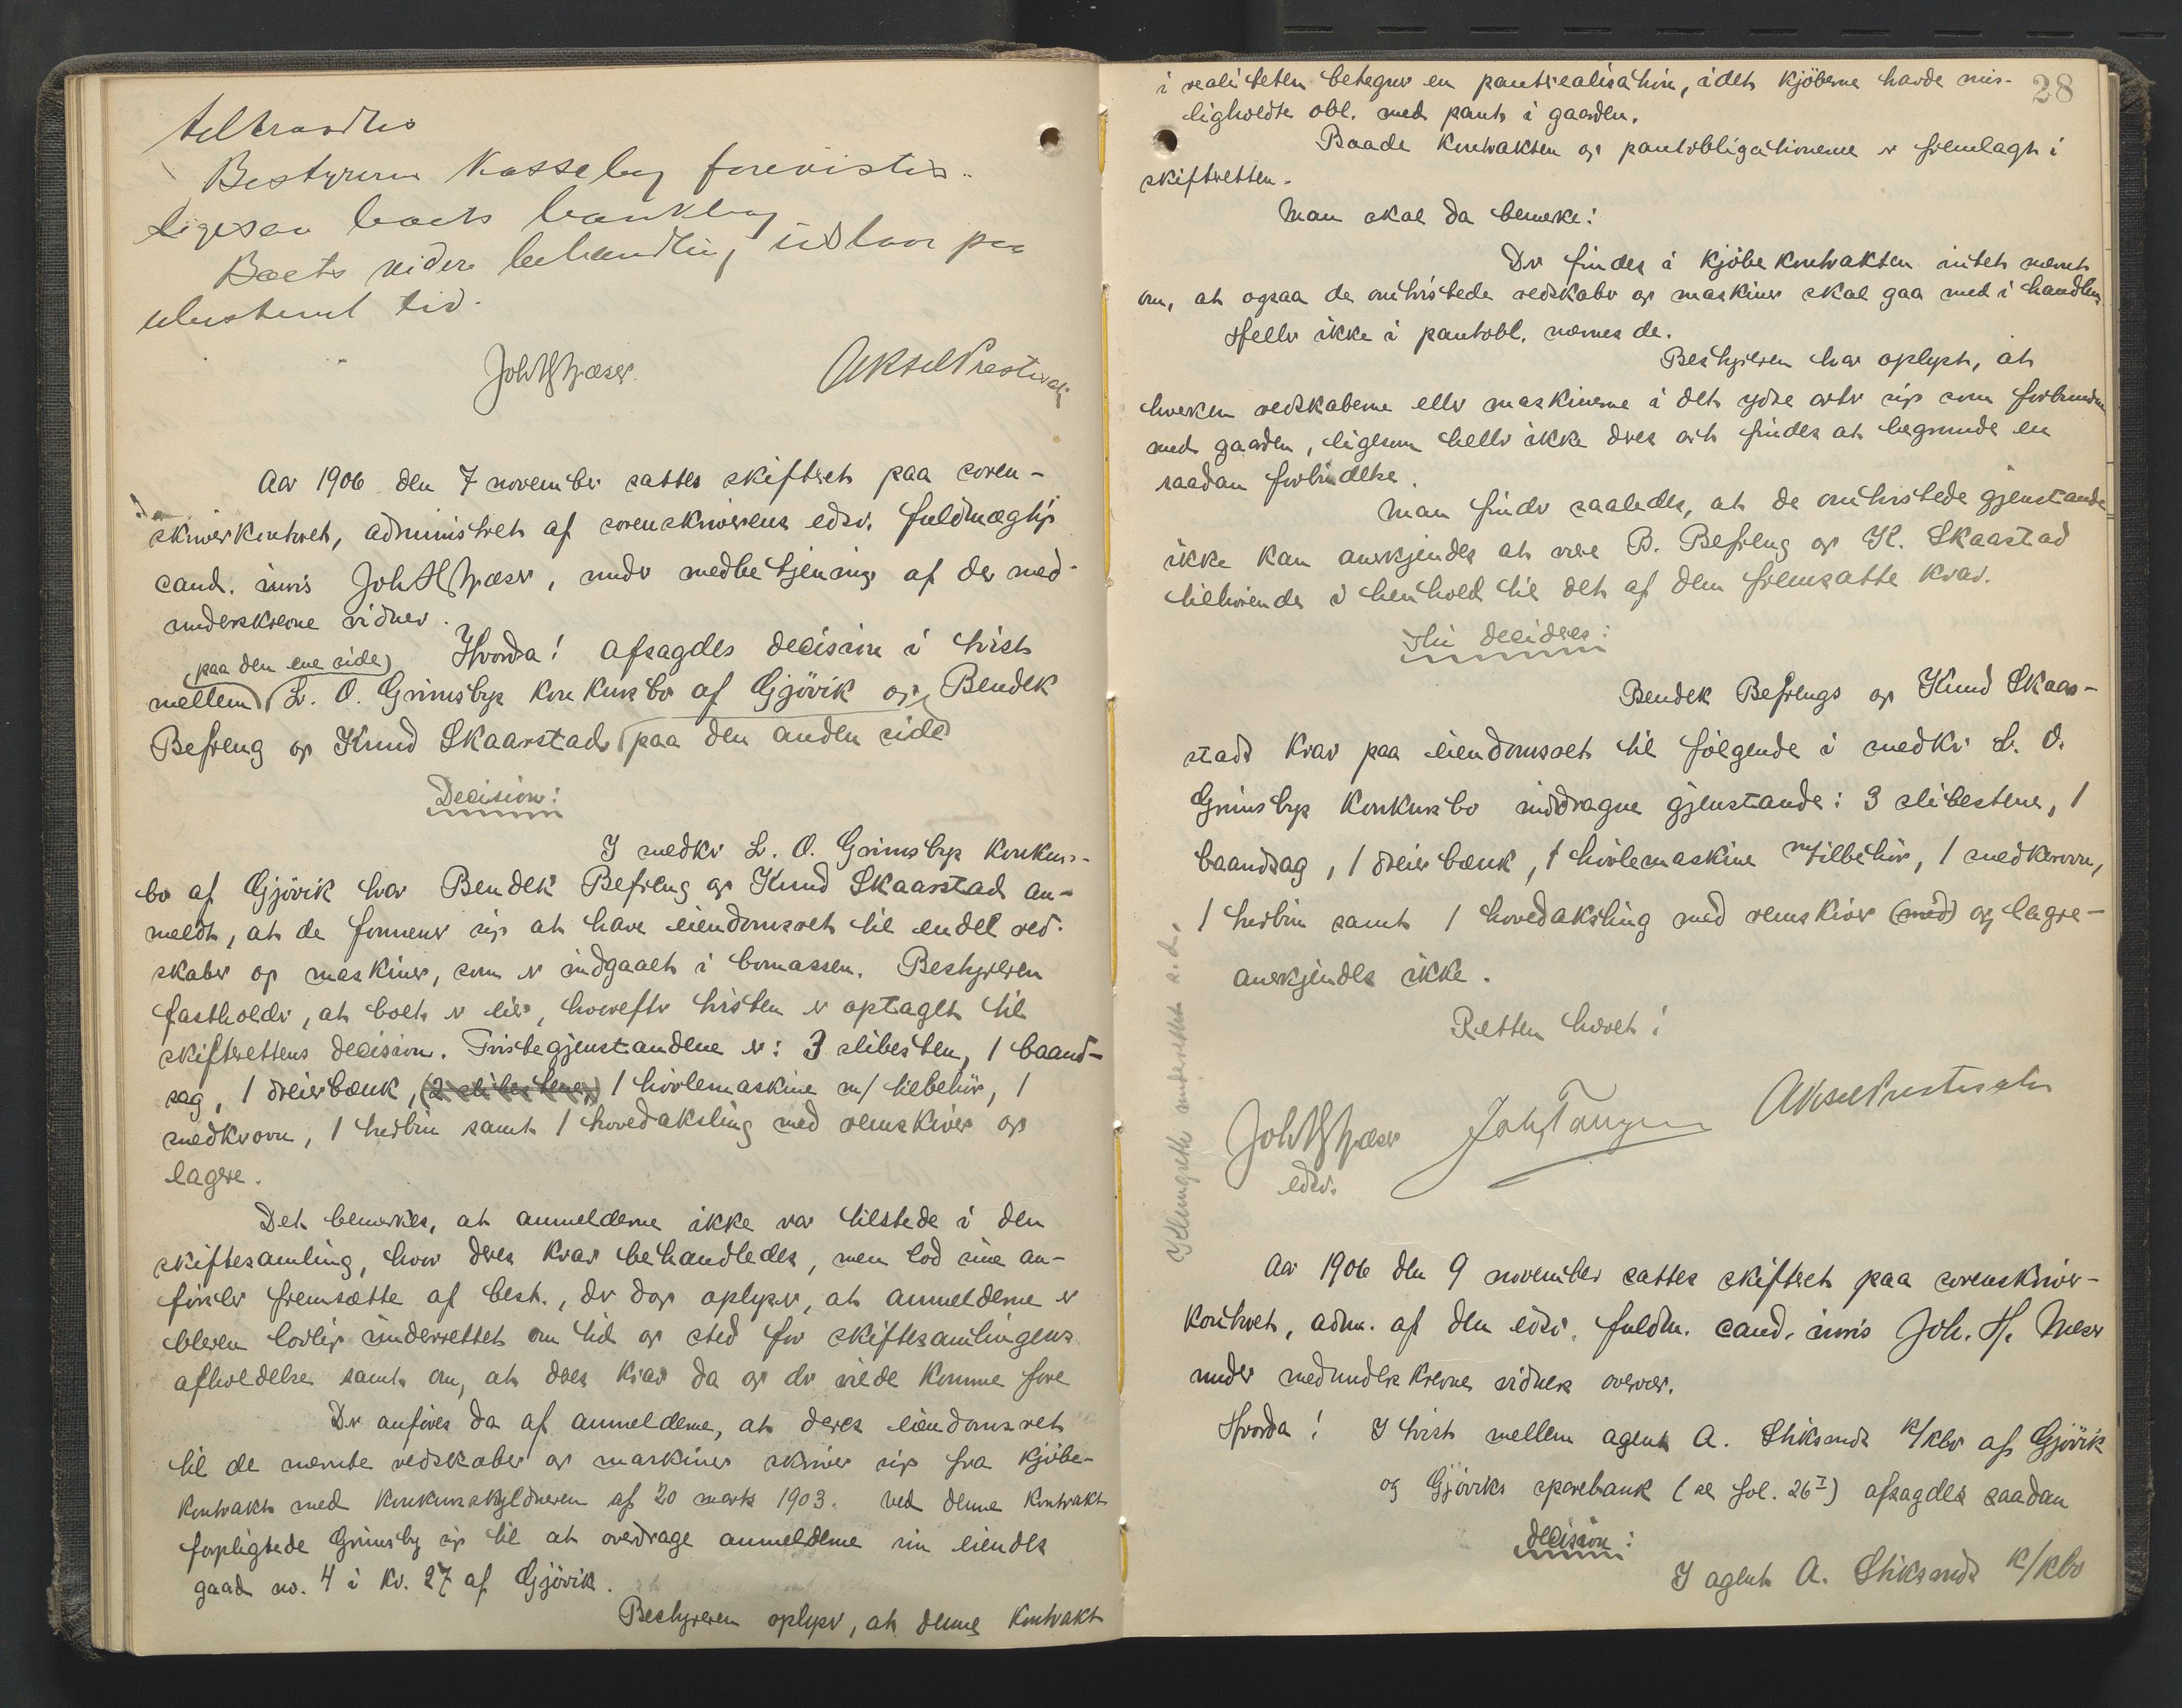 Bestyreren Kassebog forevistes
ligesaa boets bankbog
Boets videre behandling udstaar paa
ubestemt tid.
Joh H Mæser. Aksel Prestsæter
Aar 1906 den 7 november sattes skifteret paa soren-
skriverkontoret, administret af sorenskriverens edsv. fuldmægtig
cand. juris Joh H Mæser, under medbetjening af de med-
underskrevne vidner.
Hvorda! afsagdes decision i tvist
paa den ene side
mellem L. O. Grimsbys konkursbo af Gjövik og Bendek
Befreng og Knud Skaarstad paa den anden side
Decision:
I smedkr L. O. Grimsbys konkurs-
bo af Gjövik har Bendek Befreng og Knud Skaarstad an-
meldt, at de formener sig at have eiendomsret til endel red-
skaber og maskiner, som er indgaaet i bomassen. Bestyreren
fastholder, at boet er eier, hvorefter tvisten er optaget til
skifterettens decision. Tvistegjenstandene er: 3 slibesten, 1 baand-
sag, 1 dreierbænk, (2 slibestene,) 1 hövlemaskine m/ tilbehör, 1
smedkvorn, 1 turbin samt 1 hovedaksling med remskiver og
lagere.
Det bemerkes, at anmelderne ikke var tilstede i den
skiftesamling, hvor deres krav behandledes, men lod sine an-
försler fremsætte af best., der dog oplyser, at anmelderne er
bleven lovlig underrettet om tid og sted for skiftesamlingens
afholdelse samt om, at deres krav da og der vilde komme fore
Der anföres da af anmelderne, at deres eiendomsret
til de nævnte redskaber og maskiner skriver sig fra kjöbe-
kontrakt med konkursskyldneren af 20 marts 1903. Ved denne kontrakt
forpligtede Grimsby sig til at overdrage anmelderne sin eiendes
gaard no. 4 i kv. 27 af Gjövik.
Bestyreren oplyser, at denne kontrakt
28
i realiteten betegner en pantrealisation, idet kjöberne havde mis-
ligholdte obl. med pant i gaarden.
Baade kontrakten og pantobligationerne er fremlagt i
skifteretten.
Man skal da bemerke:
Der findes i kjöbekontrakten intet nævnt
om, at ogsaa de omtvistede redskaber og maskiner skal gaa med i handlen
Heller ikke i pantobl. nævnes de.
Bestyreren har oplyst, at
hverken redskaberne eller maskinerne i det ydre arter sig som forbundne
med gaarden, ligesom heller ikke deres art findes at begrunde en
saadan forbindelse.
Man finder saaledes, at de omtvistede gjenstande
ikke kan anerkjendes at være B. Befreng og K. Skaarstad
tilhörende i henhold til det af dem fremsatte krav.
Thi decideres:
Bendek Befrengs og Knud Skaar-
stads krav paa eiendomsret til fölgende i smedkr L. O.
Grimsbys konkursbo inddragne gjenstande: 3 slibestene, 1
baandsag, 1 dreierbænk, 1 hövlemaskine m/tilbehör, 1 smedkvorn,
1 turbin samt 1 hovedaksling med remskiver (med) og lagre-
anerkjendes ikke.
Retten hævet!
Joh H Mæser Joh. Tangen Aksel Prestsæter
edsv.
Aar 1906 den 9 november sattes skifteret paa sorenskriver-
kontoret, adm. af den edsv. fuldm. cand. juris Joh. H. Mæser
under medunderskrevne vidners overvær.
Hvorda! I tvist mellem agent A. Stiksruds k/kbo af Gjövik
og Gjöviks sparebank (se fol. 26 I) afsagdes saadan
decision:
I agent A. Stiksruds k/kbo